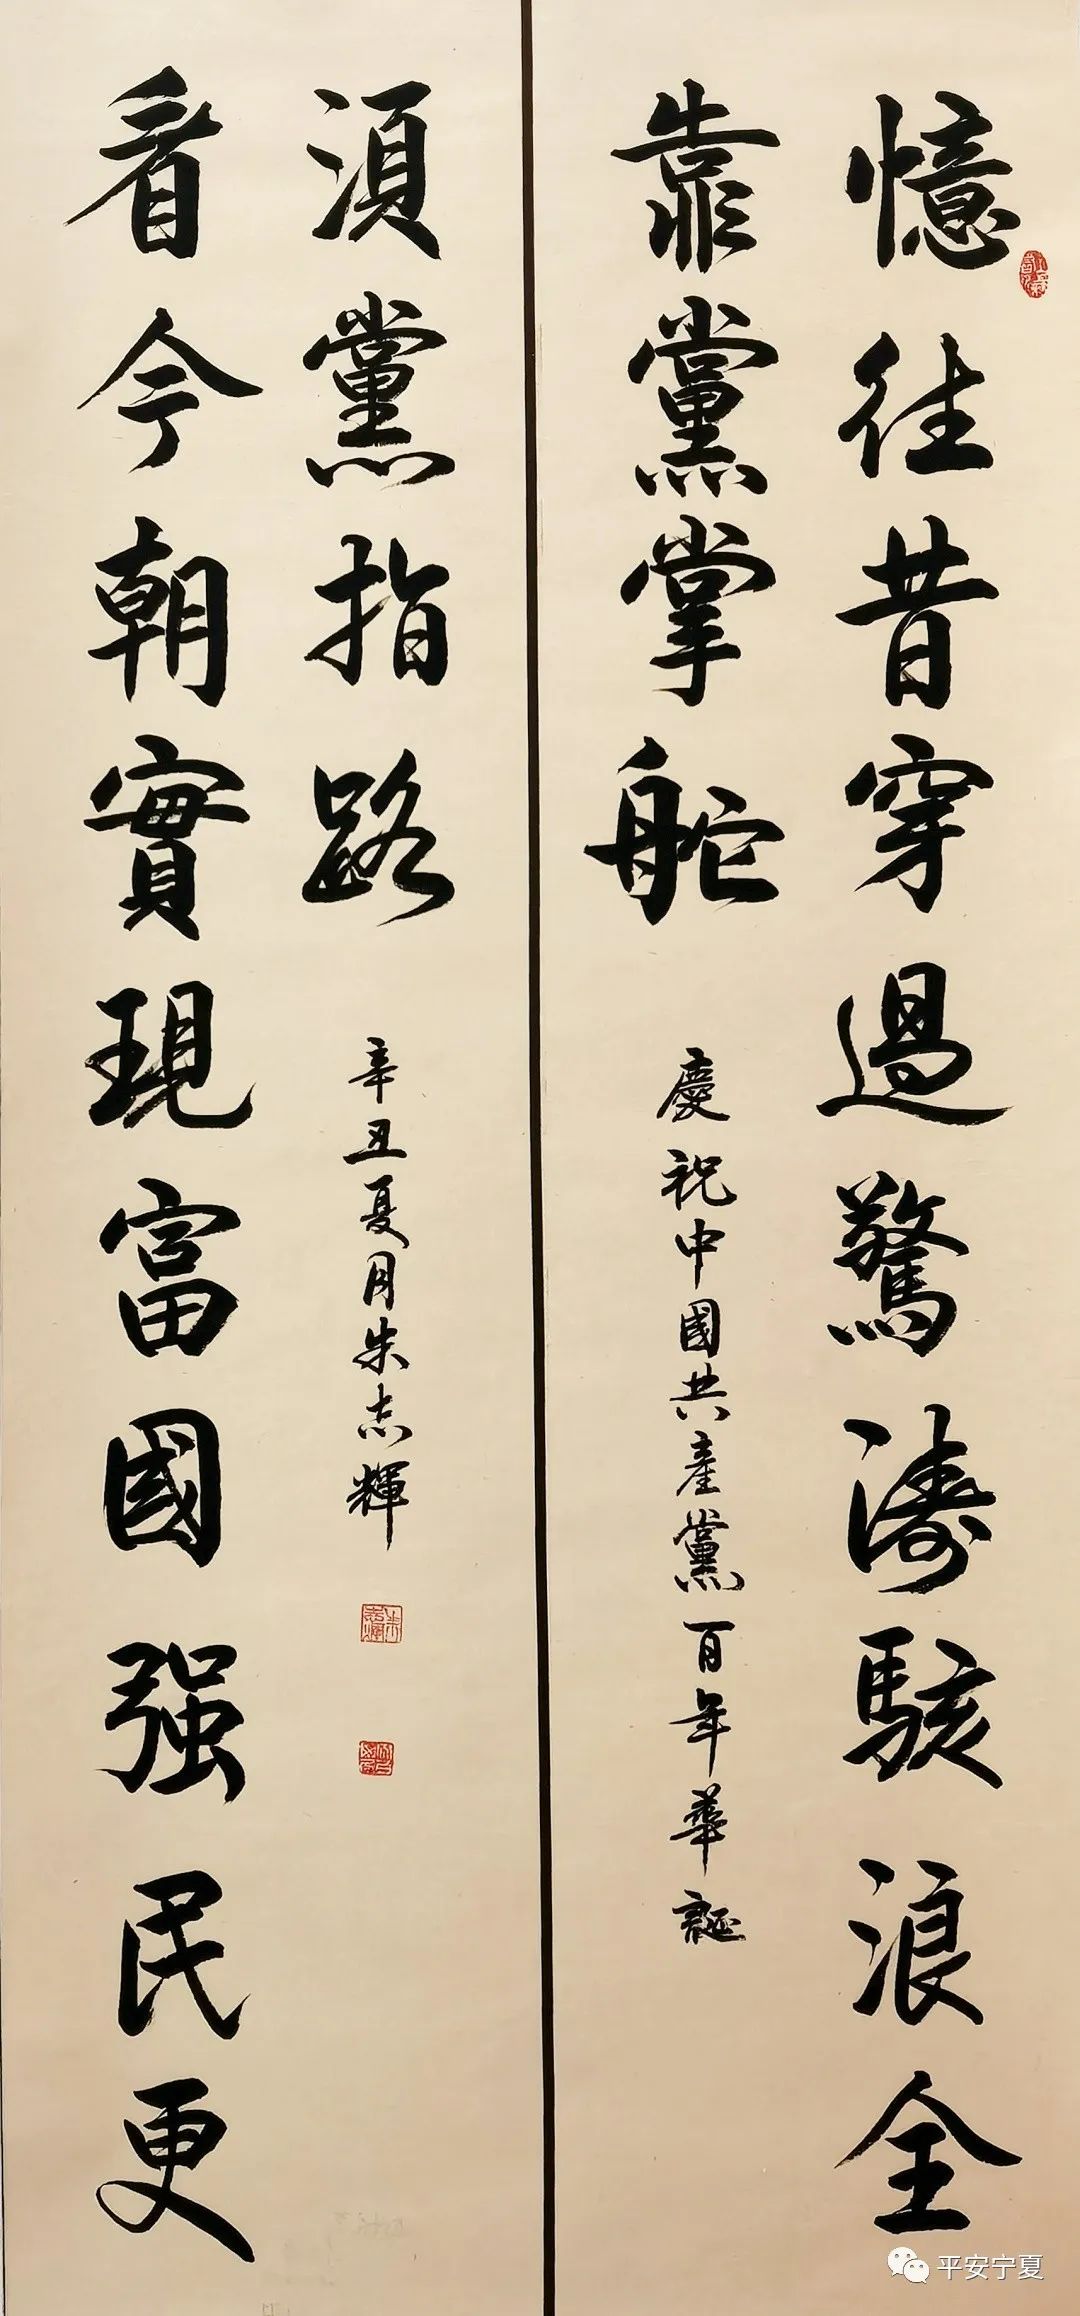 憶往昔穿過驚濤駭浪全
靠黨掌舵
慶祝中國共產黨百年華誕
看今朝實現富國强民更
須黨指路
辛丑夏月朱志輝
朱志輝
平安宁夏